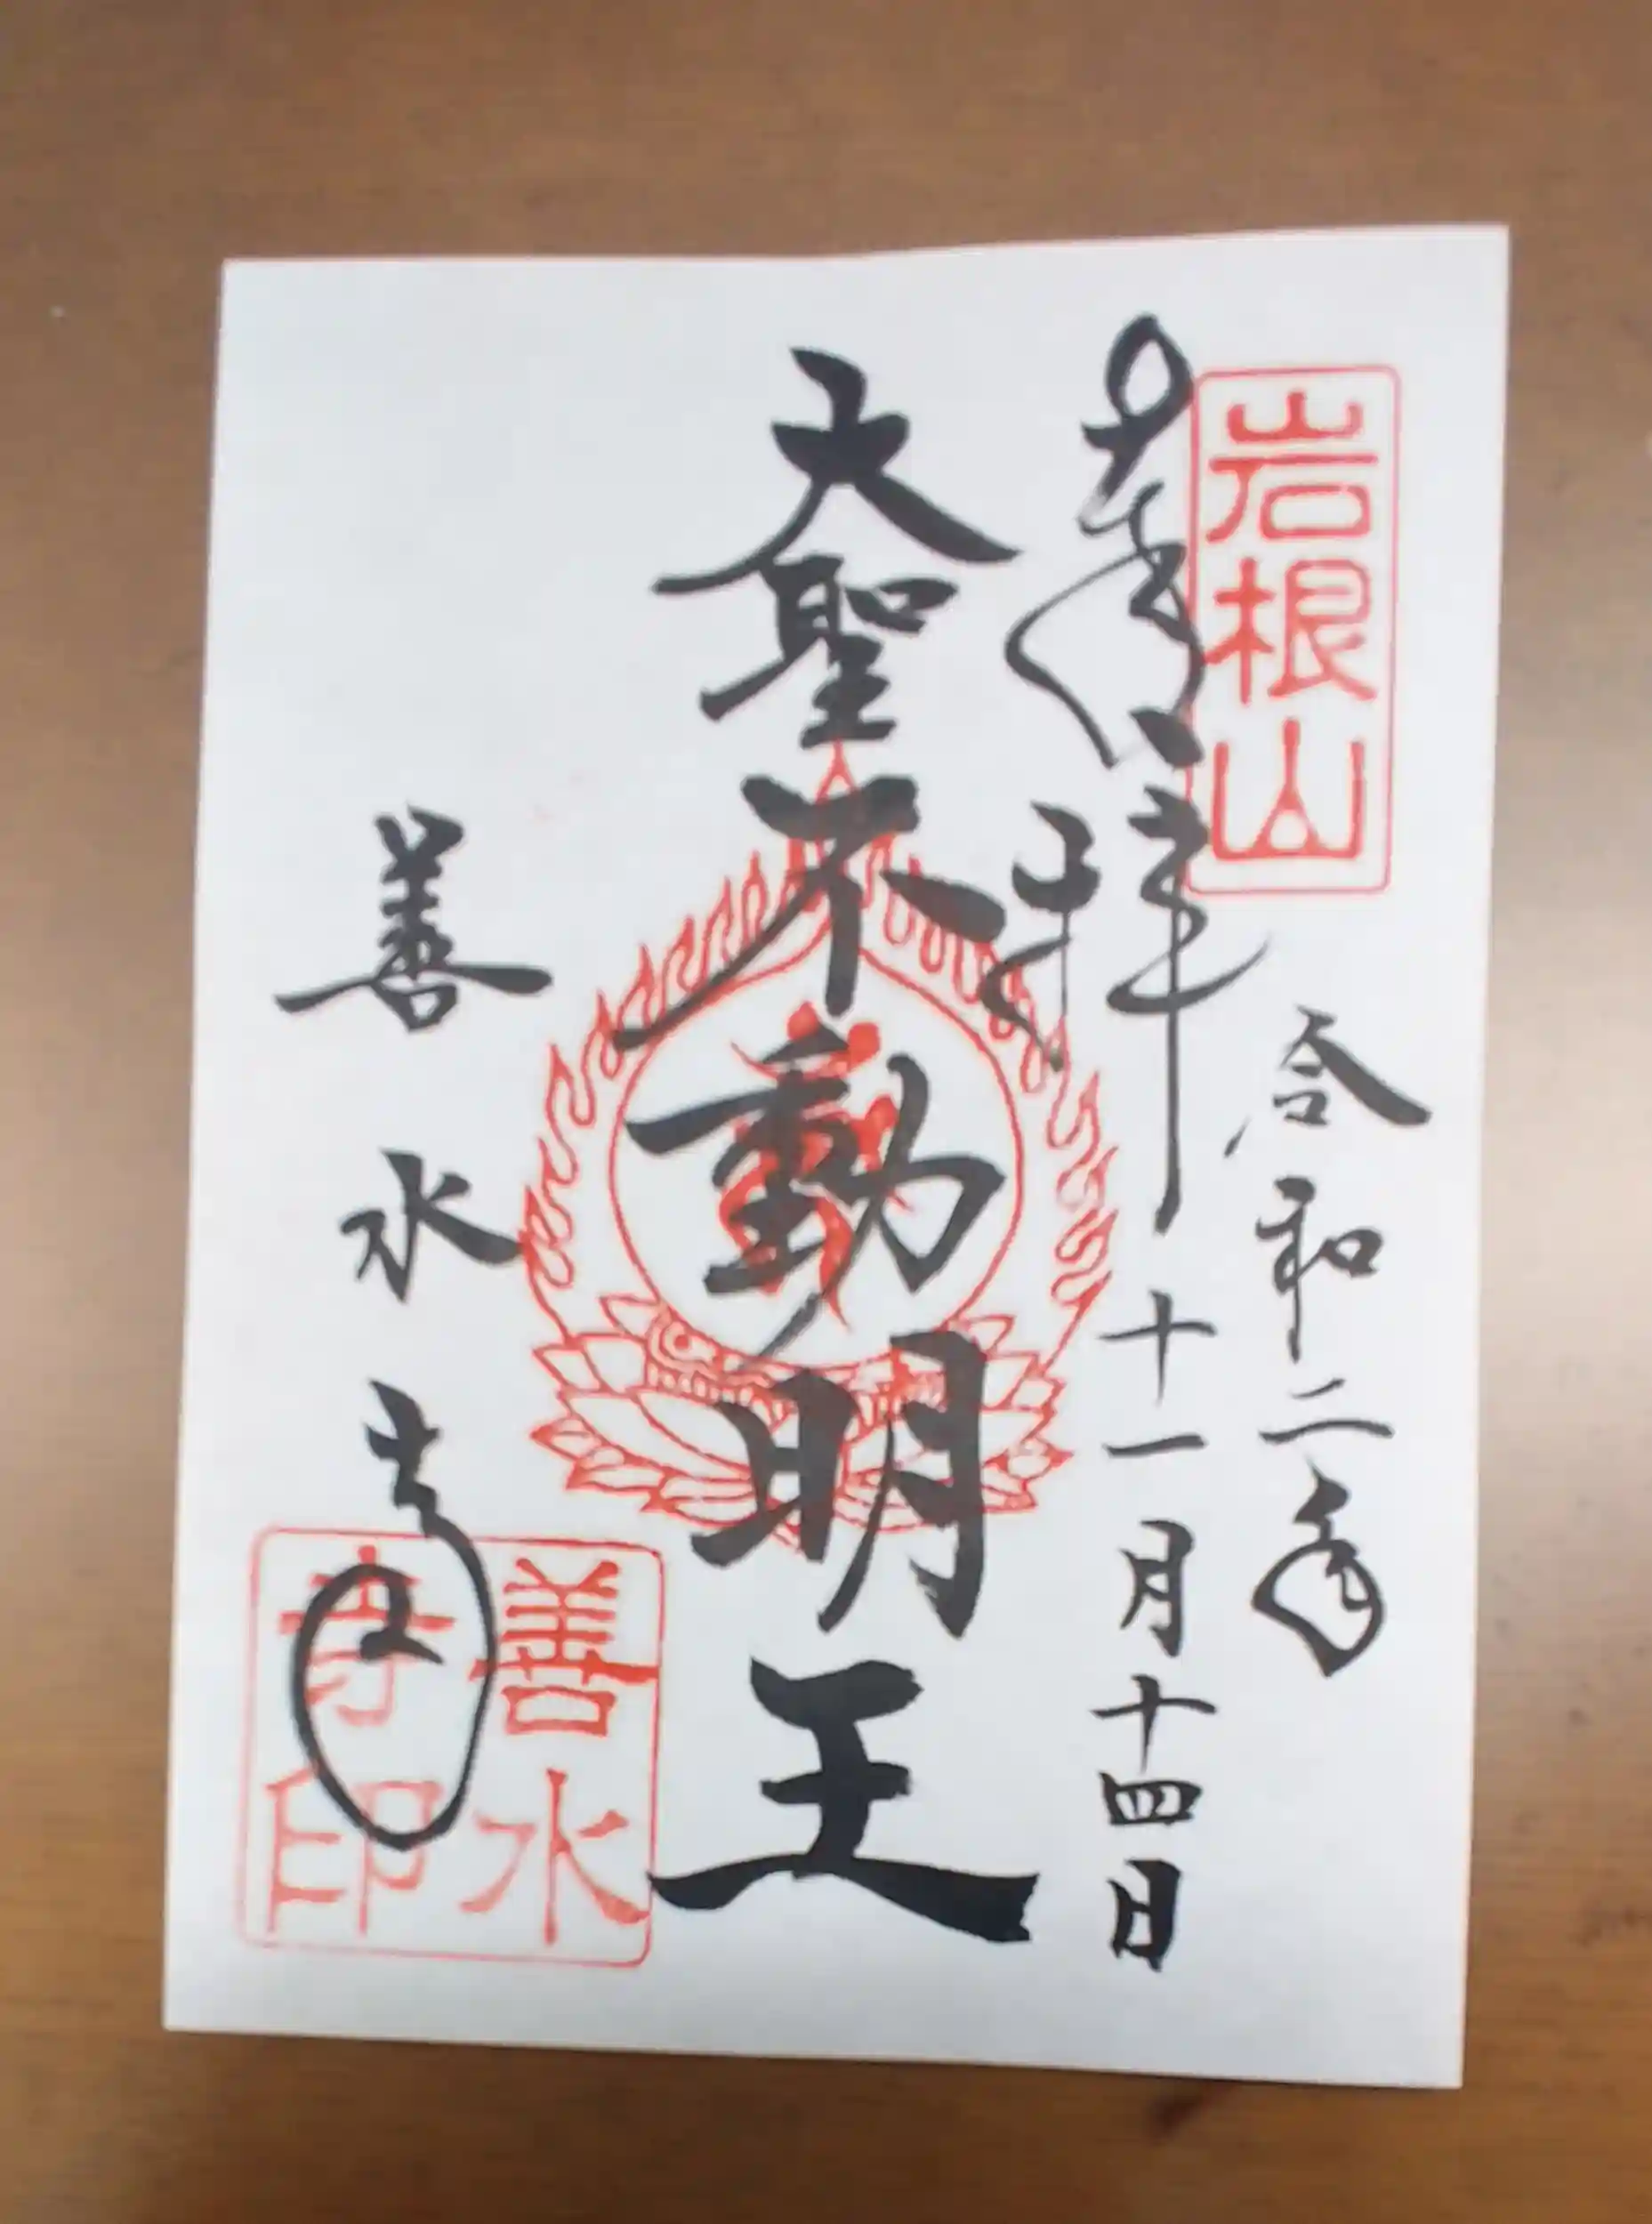 岩根山
奉拝
令和二年
十一月十四日
大聖不動明王
善水寺
善水
寺印